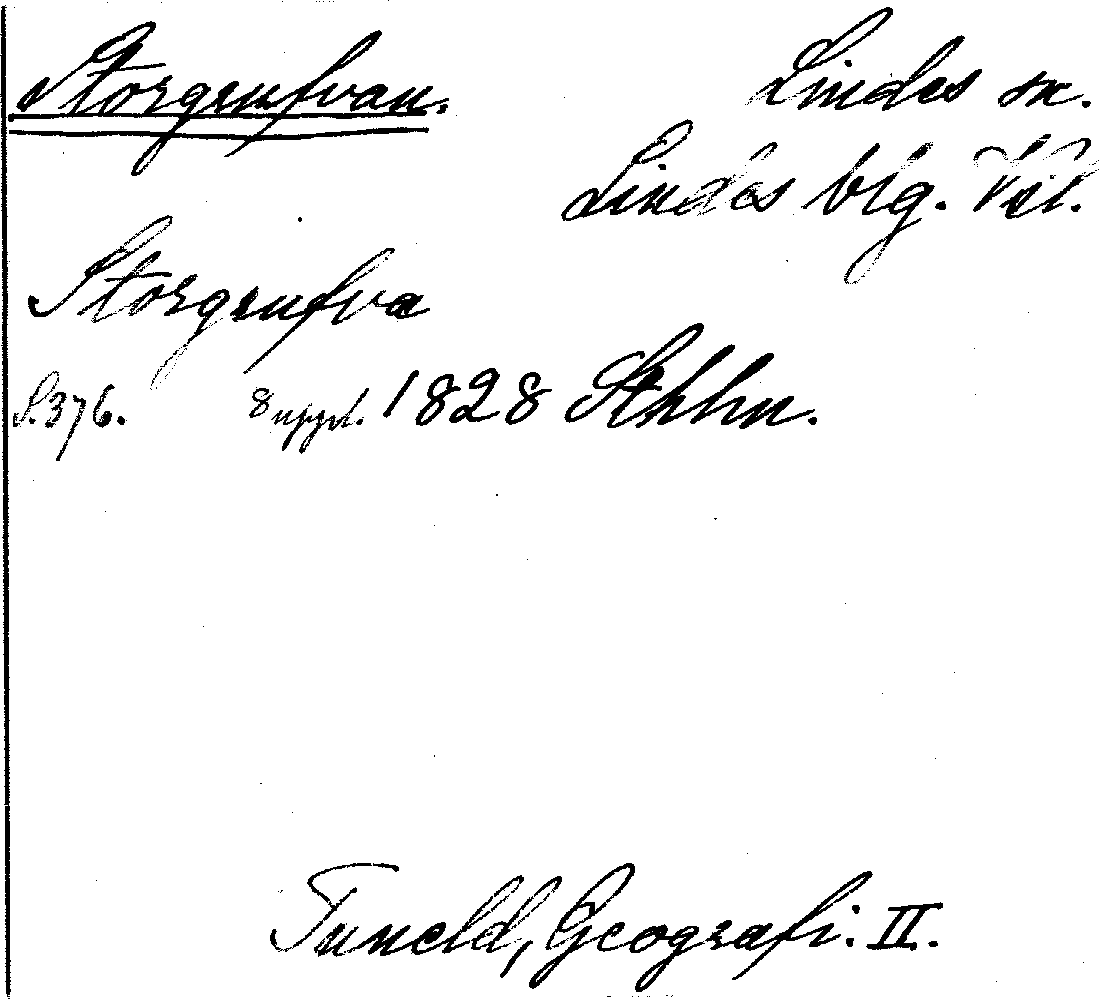 Storgrufvan.
Lindes sn.
Lindes blg. Vsl.
Storgrufva
S. 376. 8 uppl. 1828 Sthlm.
Tuneld, Geografi. II.